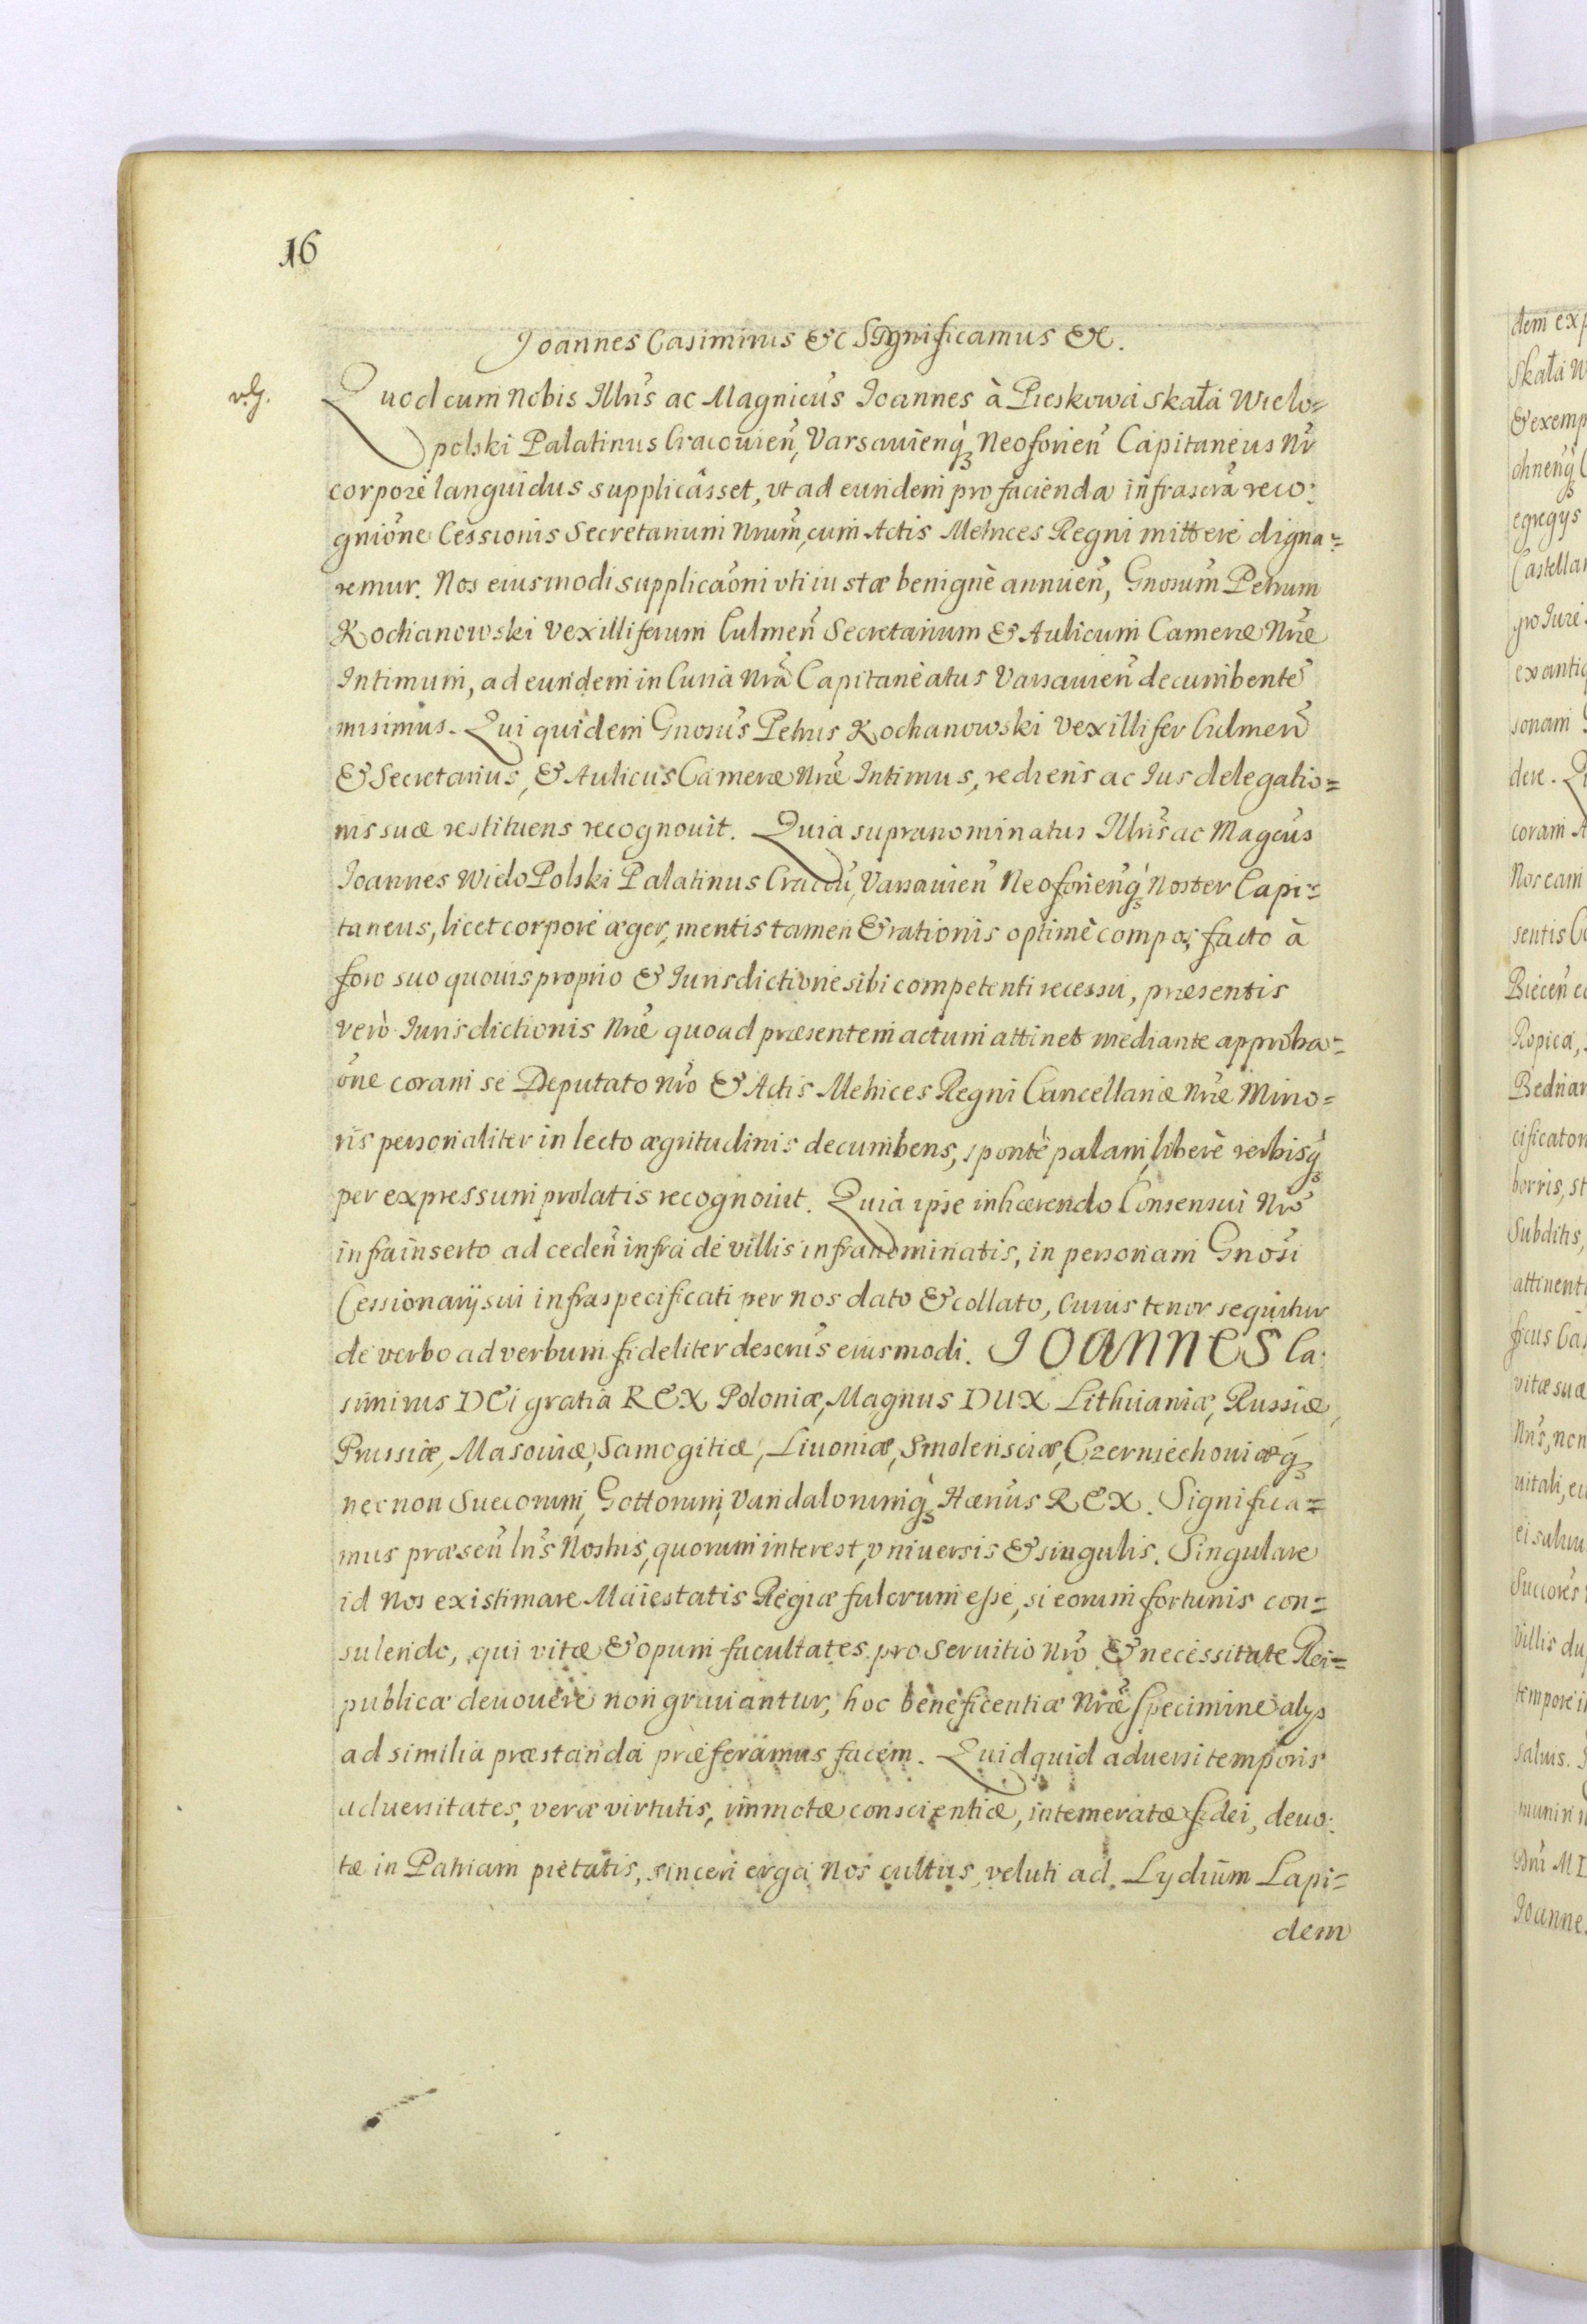 16
Joannes Casimirus &c Significamus &c.
Quod cum Nobis Illrĩs ac Magnicũs Joannes à Pieskowa skała Wielo=
polski Palatinus Cracouieñ, Varsauienq́ꝫ Neoforieñ Capitaneus Nr̃
corpore languidus supplicâsset, vt ad eundem pro facienda infrascrã reco:
gniõne Cessionis Secretarium Nrum̃, cum Actis Metrices Regni mittere digna=
remur. Nos eiusmodi supplicaõni vti iustæ benignè annueñ, Gnosum̃ Petrum
Kochanowski Vexilliferum Culmeñ Secretarium & Aulicum Cameræ Nrẽ
Intimum, ad eundem in Curia Nrã Capitaneatus Varsauieñ decumbentẽ
misimus. Qui quidem Gnosũs Petrus Kochanowski Vexillifer Culmeñ
& Secretarius, & Aulicus Cameræ Nrẽ Intimus, rediens ac Ius delegatio=
nis suæ restituens recognouit. Quia supranominatus Illrĩs ac Magcũs
Joannes WieloPolski Palatinus Cracoũ, Varsauieñ Neoforienq́ꝫ Noster Capi=
taneus, licet corpore æger, mentis tamen & rationis optimè compos, facto à
foro suo quouis proprio & Iurisdictione sibi competenti recessu, præsentis
verò Iurisdictionis Nrẽ quoad præsentem actum attinet mediante approba=
õne coram se Deputato Nrõ & Actis Metrices Regni Cancellariæ Nrẽ Mino=
ris personaliter in lecto ægritudinis decumbens, spontè palam, liberè verbisq́ꝫ
per expressum prolatis recognouit. Quia ipse inhærendo Consensui Nrõ
infrainserto ad cedeñ infra de villis infranominatis, in personam Gnosĩ
Cessionarij sui infraspecificati per nos dato & collato, Cuius tenor sequitur
de verbo ad verbum fideliter descrius̃ eiusmodi. JOANNES Ca:
simirus DEi gratia REX Poloniæ, Magnus DUX Lithuaniæ, Russiæ,
Prussiæ, Masouiæ, Samogitiæ, Liuoniæ, Smolensciæ, Czerniechouiæq́ꝫ
necnon Suecorum, Gottorum, Vandalorumq́ꝫ Hærius̃ REX. Significa=
mus præseñ lrĩs Nostris, quorum interest, vniuersis & singulis. Singulare
id Nos existimare Maiestatis Regiæ fulcrum esse, si eorum fortunis con=
sulendo, qui vitæ & opum facultates pro Seruitio Nrõ & necessitate Rei=
publicæ deuouere non grauantur, hoc beneficentiæ Nrẽ specimine alijs
ad similia præstanda præferamus facem. Quidquid aduersi temporis
aduersitates, veræ virtutis, immotæ conscientiæ, intemeratæ fidei, deuo:
tæ in Patriam pietatis, sinceri erga Nos cultus, veluti ad Lydium Lapi=
dem